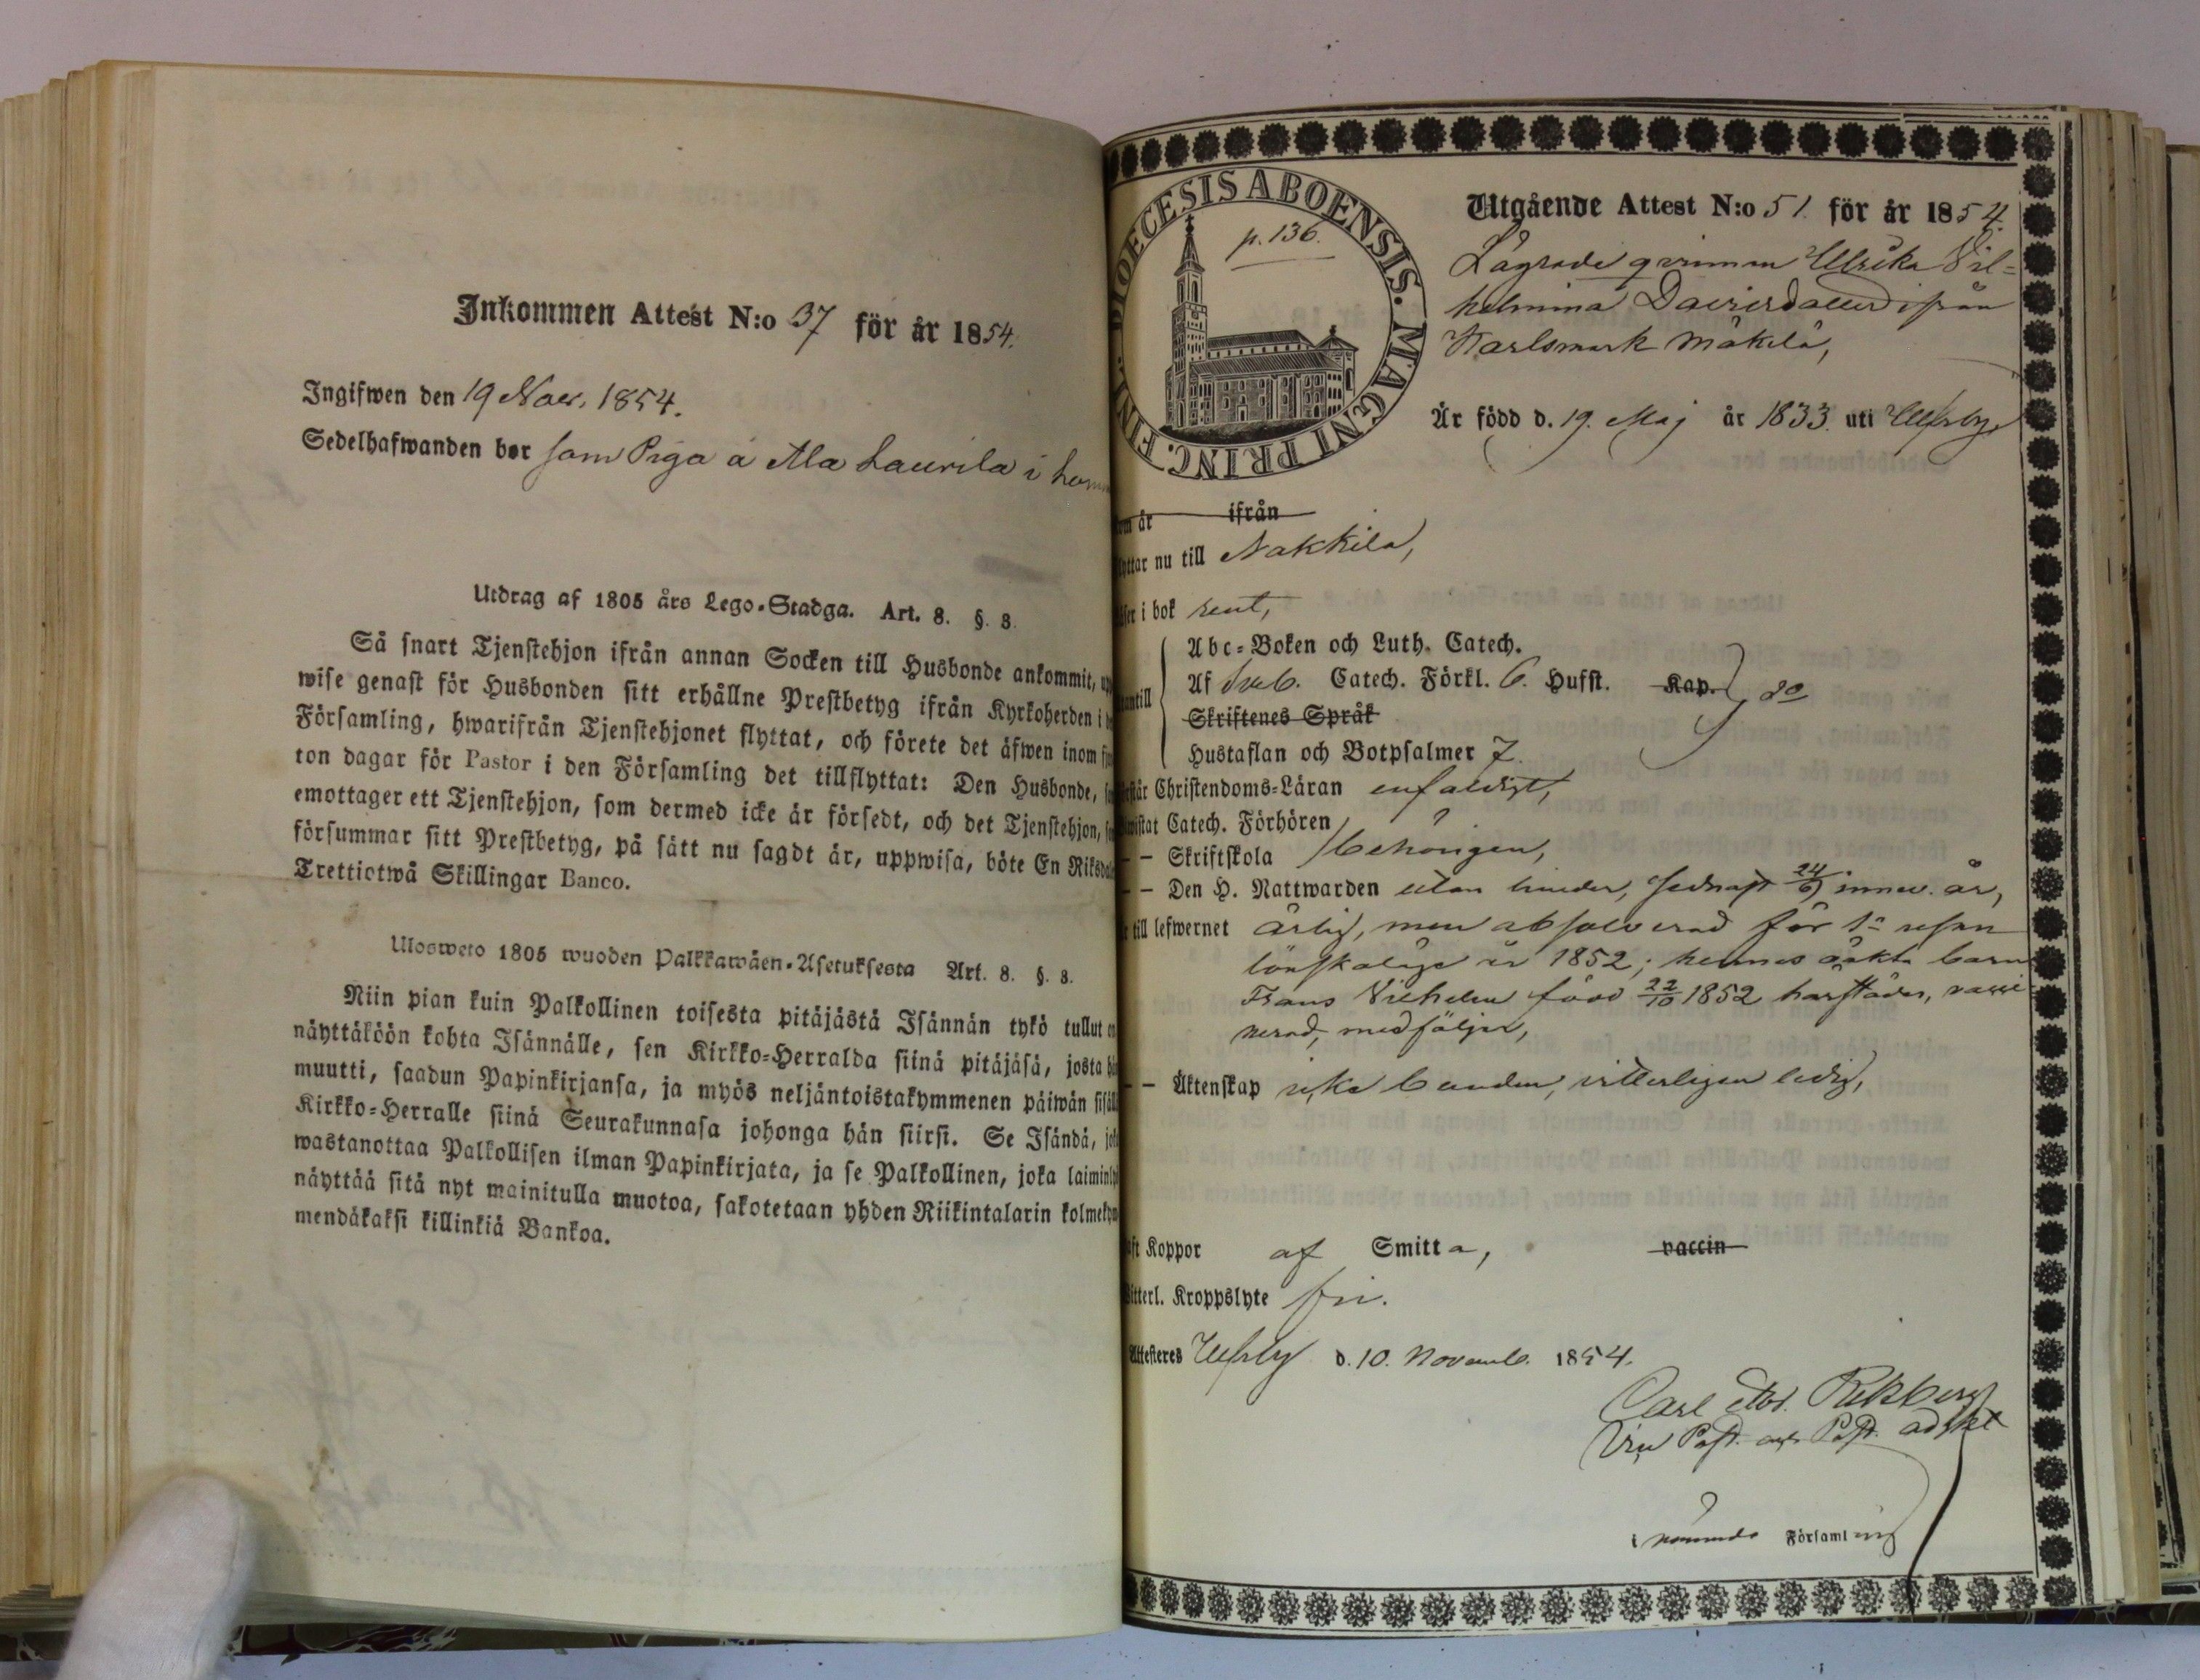 Inkommen Attest N:o 37 för år 1854.
Ingifwen den 19 Nov. 1854.
Sedelhafwanden bor som Piga å Ala Laurila i
Utdrag af 1805 års Lego-Stadga. Art. 8. §. 8.
Så snart Tjenstehjon ifrån annan Socken till Husbonde ankommit,
wise genast för Husbonden sitt erhållne Prestbetyg ifrån Kyrkoherden i
Församling, hwarifrån Tjenstehjonet flyttat, och förete det äfwen inom
ton dagar för Pastor i den Församling det tillflyttat: Den Husbonde,
emottager ett Tjenstehjon, som dermed icke är försedt, och det Tjenstehjon,
försummar sitt Prestbetyg, på sätt nu sagdt är, uppwisa, böte En Riksdal
Trettiotwå Skillingar Banco.
Ulosweto 1805 wuoden Palkkawäen-Asetuksesta Art. 8. §. 8.
Niin pian kuin Palkollinen toisesta pitäjästä Isännän tykö tullut on
näyttäköön kohta Isännälle, sen Kirkko-Herralda siinä pitäjäsä, josta hän
muutti, saadun Papinkirjansa, ja myös neljäntoistakymmenen päiwän sisäll
Kirkko-Herralle siinä Seurakunnasa johonga hän siirsi. Se Isändä, jok
wastanottaa Palkollisen ilman Papinkirjata, ja se Palkollinen, joka laiminly
näyttää sitä nyt mainitulla muotoa, sakotetaan yhden Riikintalarin kolmeky
mendäkaksi killinkiä Bankoa.
DIOECESIS ABOENSIS. MAGNI PRINC. FINL.
p. 136.
Utgående Attest N:o 51. för år 1854.
Lägrade qvinnan Ulrika Vil=
helmina Davidsdotter ifrån
Karlsmark Mäkelä,
Är född d. 19. Maj år 1833. uti Ulfsby,
om är ifrån
yttar nu till Nakkila,
äser i bok rent,
Abc-Boken och Luth. Catech.
antill Af Sveb. Catech. Förkl. 6. Hufst. Kap.
Skriftenes Språk
Hustaflan och Botpsalmer 7.
står Christendoms-Läran enfaldigt,
wistat Catech. Förhören
— — Skriftskola behörigen,
— — Den H. Nattwarden utan hinder, sednast 24/9 innev. år,
till lefwernet ärlig, men absolverad för 1a resan
lönskaläge år 1852; hennes oäkta barn
Frans Vilhelm född 22/10 1852 härstädes, vacci-
nerad, medföljer,
— — Äktenskap icke bunden, vitterligen ledig,
aft Koppor af Smitta, vaccin
Witterl. Kroppslyte fri.
Attesteres Ulfsby d. 10. Novemb. 1854.
Carl
Vice Past. Past. adjkt
i nämnde Församling